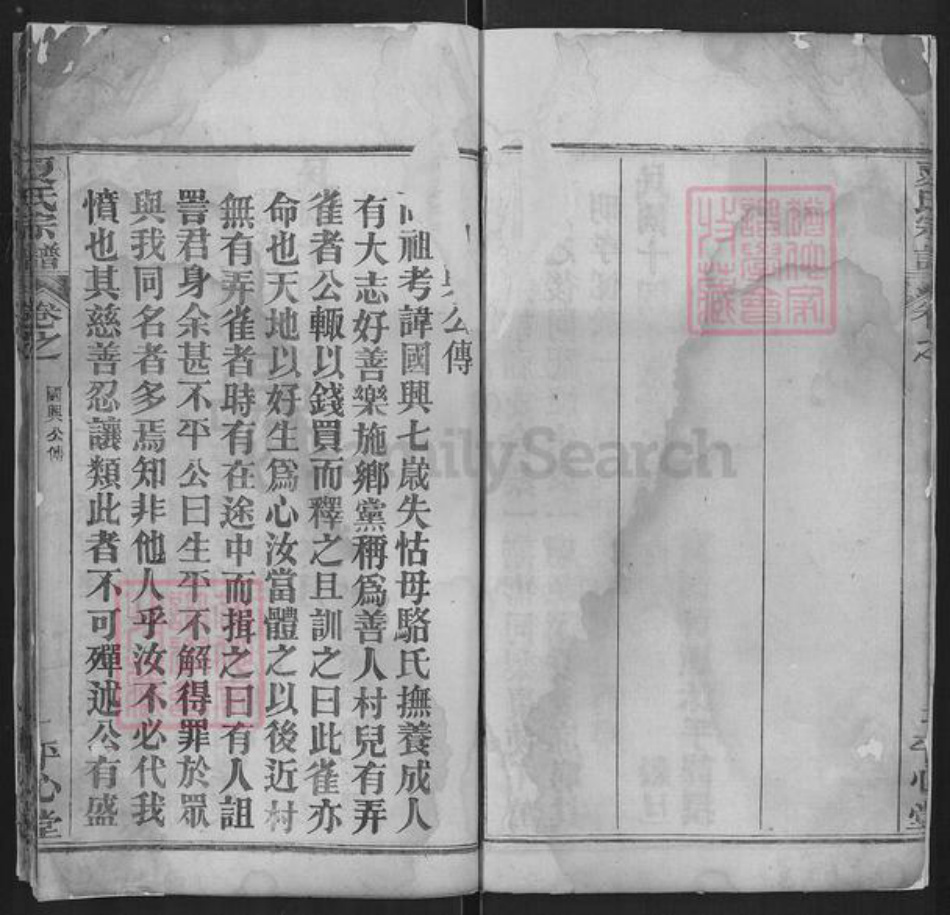 公傳
祖考諱國興七歲失怙母駱氏撫養成人
有大志好善樂施鄉黨稱爲善人村兒有弄
雀者公輒以錢買而釋之且訓之曰此雀亦
命也天地以好生爲心汝當體之以後近村
無有弄雀者時有在途中而揖之曰有人詛
詈君身余甚不平公曰生平不解得罪於眾
與我同名者多焉知非他人乎汝不必代我
憤也其慈善忍讓類此者不可殫述公有盛
夏氏宗譜
卷之
國興公傳
平心堂
FamilySearch